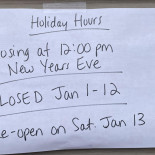 Holiday Hours
osing at 12:00 pm
New Years Eve
LOSED Jan 1-12
e-open on Sat. Jan 13